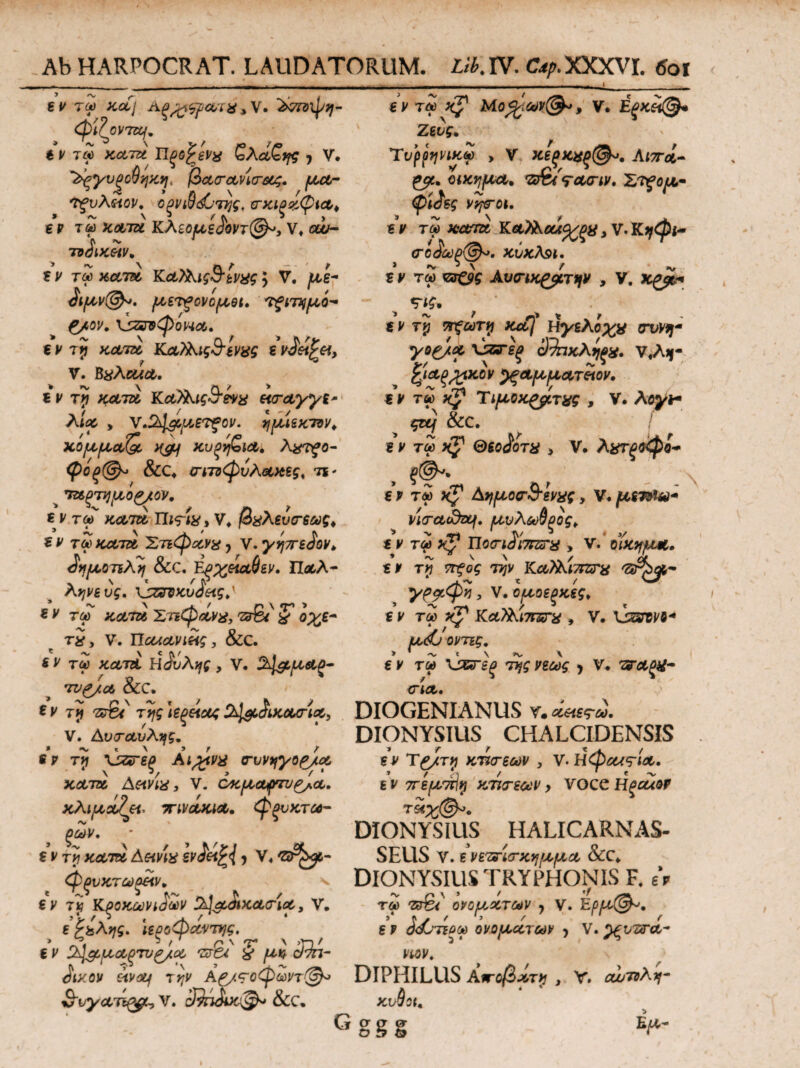 Ab HARPOCRAT. LAUDATORUM. Lib. IV. Cap. XXXVI. 601
ἐν τῷ καὶ Ἀρχεστράτου, V. ἀποψη-
φίζονται.
ἐν τῷ κατὰ Προξένου βλάβης, V.
ἀργυροθήκη. βασανίσας. μα-
τρυλεῖον. ὀρνιθευτής. σκιράφια.
ἐν τῷ κατὰ Κλεομέδοντος, V. αὐ-
τοδικεῖν.
ἐν τῷ κατὰ Καλλισθένους; V. μέ-
διμνος. μετρονόμοι. τριτημό-
ριον. ὑποφόνια.
ἐν τῇ κατὰ Καλλισθένους ἐνδείξει,
V. Βουλαία.
ἐν τῇ κατὰ Καλλισθένου εἰσαγγε-
λίᾳ, V. Διάμετρον. ἡμίεκτον.
κόμματα καὶ κυρήβια. λουτρο-
φόρος &c. σιτοφύλακες. τε-
ταρτημόριον.
ἐν τῷ κατὰ Πιστίου, V. βουλεύσεως.
ἐν τῷ κατὰ Στεφάνου, V. γήπεδον.
δημοτελῆ &c. Ἐρχίαθεν. Παλ-
ληνεύς. ὑποκυδεῖς.
ἐν τῷ κατὰ Στεφάνου, περὶ τοῦ ὀχε-
τοῦ, V. Παιανιεῖς, &c.
ἐν τῷ κατὰ Ἡδύλης, V. Διαμαρ-
τυρία &c.
ἐν τῇ περὶ τῆς ἱερείας Διαδικασίᾳ,
V. Δυσαύλης.
ἐν τῇ ὑπὲρ Αἰχίνου συνηγορίᾳ
κατὰ Δεινίου, V. ἐκμαρτυρία.
κλιμάζει. πινάκια. φρυκτω-
ρῶν.
ἐν τῇ κατὰ Δεινίου ἐνδείξει, V. παρα-
φρυκτωρεῖν.
ἐν τῇ Κροκωνιδῶν Διαδικασίᾳ, V.
ἐξούλης. ἱεροφάντης.
ἐν Διαμαρτυρίᾳ περὶ τοῦ μὴ ἐπί-
δικον εἶναι τὴν Ἀριστοφῶντος
θυγατέρα, V. ἐπίδικος &c.
ἐν τῷ κατὰ Μοσχίωνος, V. Ἑρκεῖος
Ζεύς.
Τυρρηνικῷ, V. κέρκουρος. Λιπά-
ρα. οἴκημα. περίστασιν. Στρομ-
φίδες νῆσοι.
ἐν τῷ κατὰ Καλλαίσχρου, V. Κηφι-
σόδωρος. κύκλοι.
ἐν τῷ πρὸς Λυσικράτην, V. κρᾶ-
στις.
ἐν τῇ πρώτῃ κατὰ Ἡγελόχου συνη-
γορίᾳ ὑπὲρ ἐπικλήρου. V. Λη-
ξιαρχικὸν γραμματεῖον.
ἐν τῷ κατὰ Τιμοκράτους, V. λογι-
σταὶ &c.
ἐν τῷ κατὰ Θεοδότου, V. λουτροφό-
ρος.
ἐν τῷ κατὰ Δημοσθένους, V. μετοιω-
νίσασθαι. μυλωθρός.
ἐν τῷ κατὰ Ποσιδίππου, V. οἴκημα.
ἐν τῇ πρὸς τὴν Καλλίππου παρα-
γραφῇ, V. ὁμοερκές.
ἐν τῷ κατὰ Καλλίππου, V. ὑπονο-
μεύοντες.
ἐν τῷ ὑπὲρ τῆς νεὼς, V. παρου-
σία.
DIOGENIANUS V. ἀειεστώ.
DIONYSIUS CHALCIDENSIS
ἐν Τρίτῃ κτίσεων, V. Ἡφαιστία.
ἐν πέμπτῃ κτίσεων, voce Ἡραῖον
τεῖχος.
DIONYSIUS HALICARNAS-
SEUS V. ἐνεπίσκημμα &c.
DIONYSIUS TRYPHONIS F. ἐν
τῷ περὶ ὀνομάτων, V. Ἕρμος.
ἐν δευτέρῳ ὀνομάτων, V. χρυπά-
νιον.
DIPHILUS Ἀποβάτῃ, V. αὐτολή-
κυθοι.
Gggg Ἐμ-